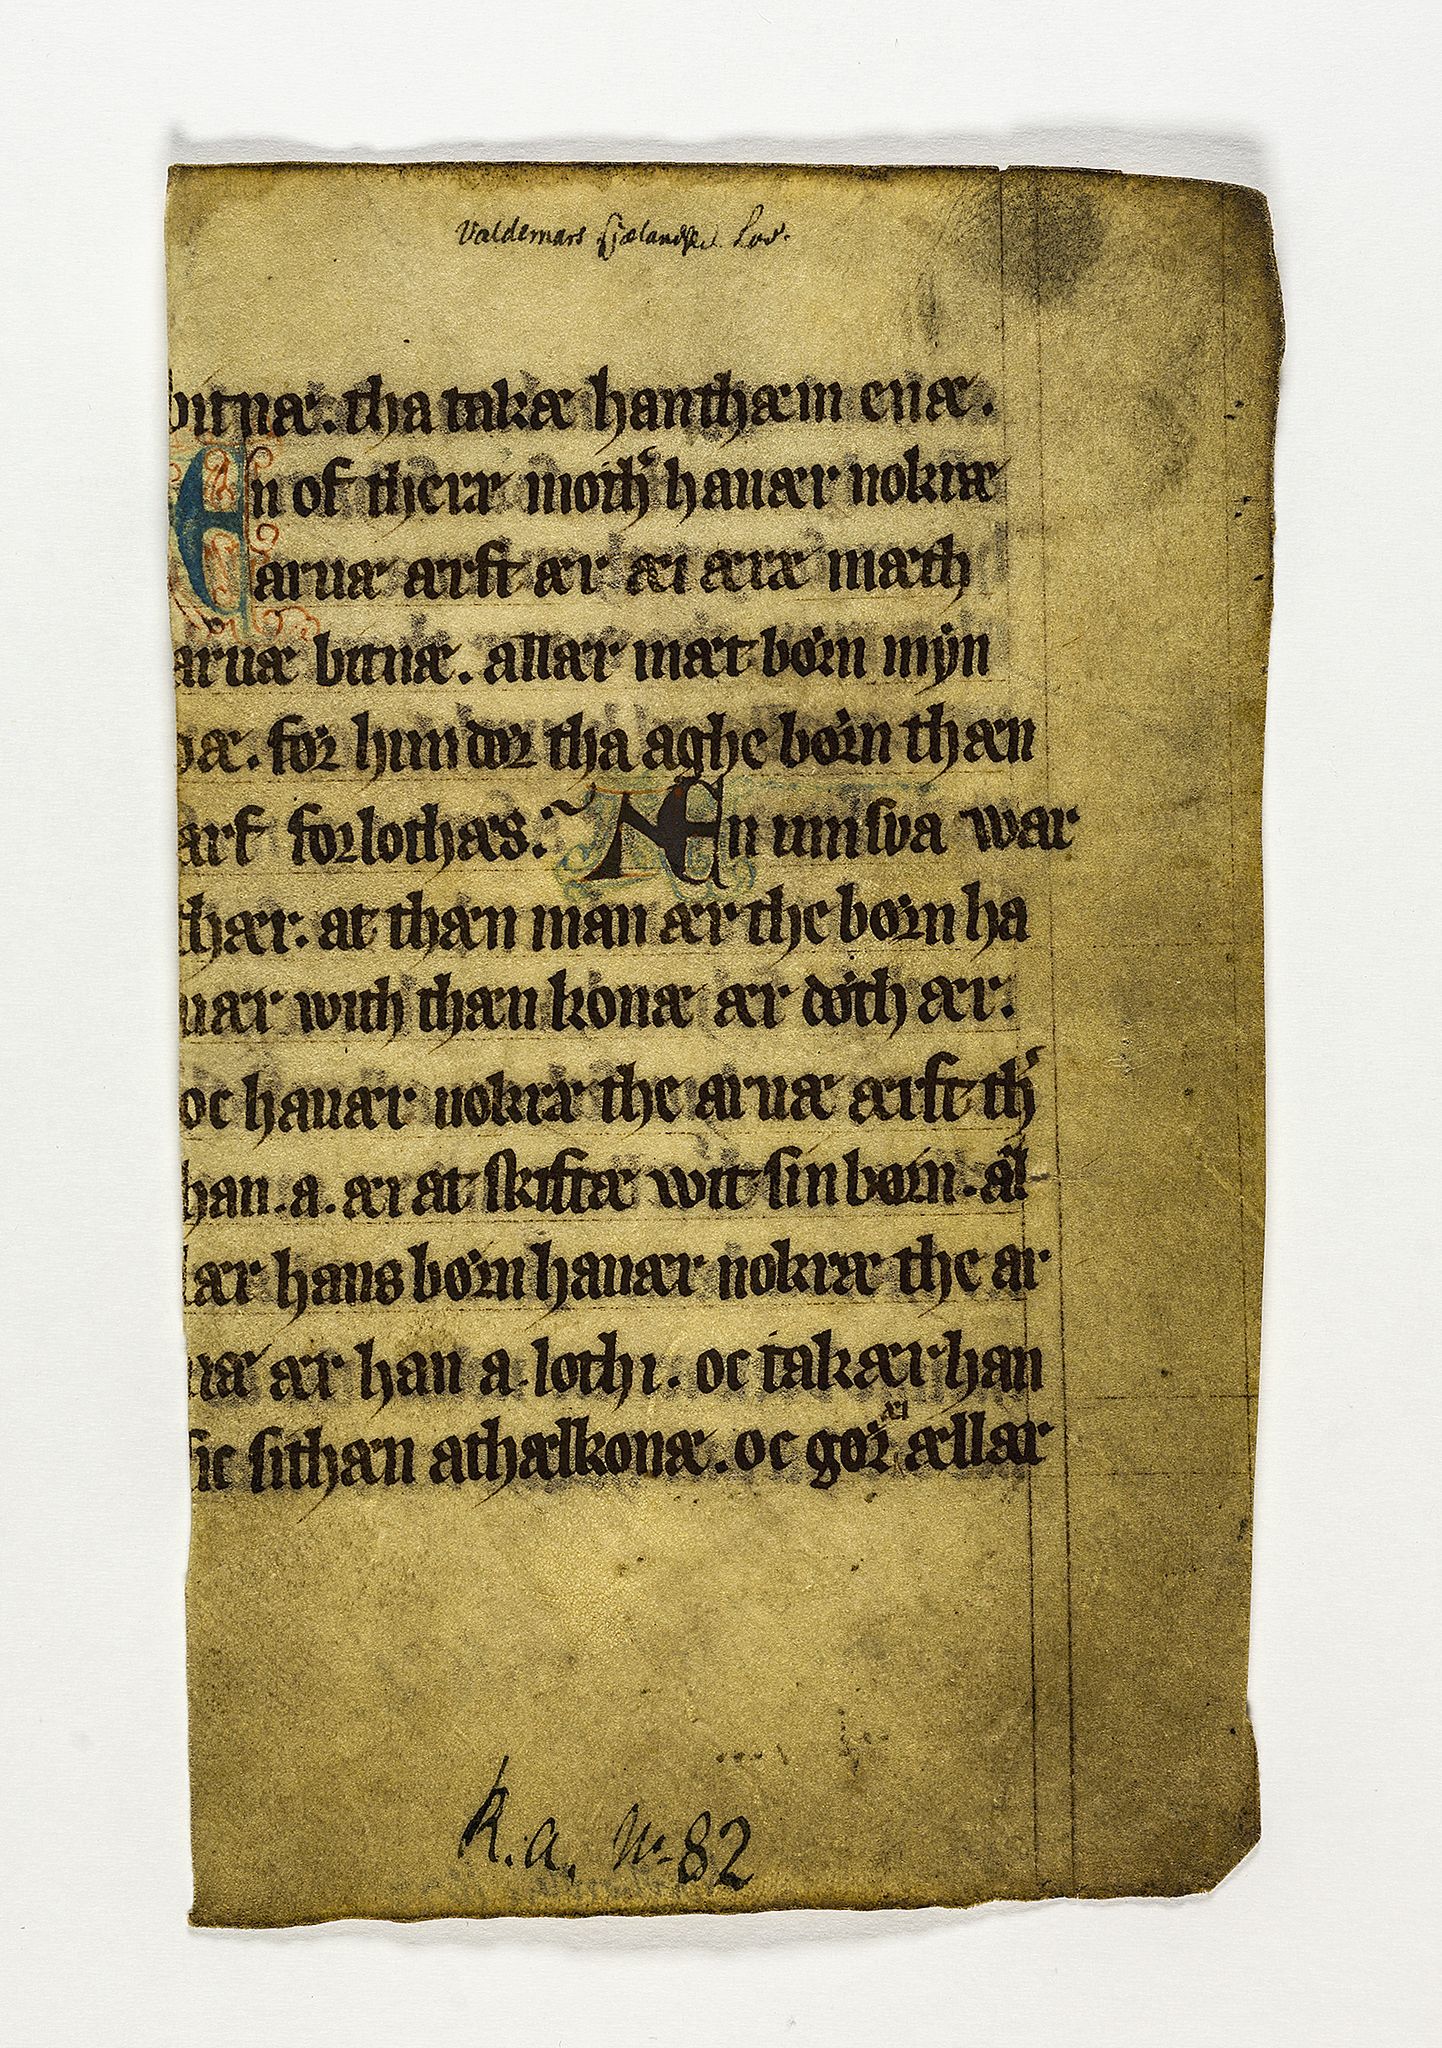 Valdemars sjælandske Lov.
vitnæ. tha takæ han thæm enæ.
En of theræ moth͛ hauær nokræ
aruæ ærft ær æi æræ mæth
aruæ vitnæ. allær mæt börn myn
næ. for hundor tha aghe börn thæn
arf forlothæs. Æn um sva war
thær. at thæn man ær the börn ha
uær with thæn konæ ær döth ær.
oc hauær nokræ the aruæ ærft th͛
han. a. æi at skiftæ wit sin börn. al
lær hans börn hauær nokræ the ar
uæ ær han a lothi. oc takær han
sic sithæn athælkonæ. oc gör æi ællær
R.a. No 82